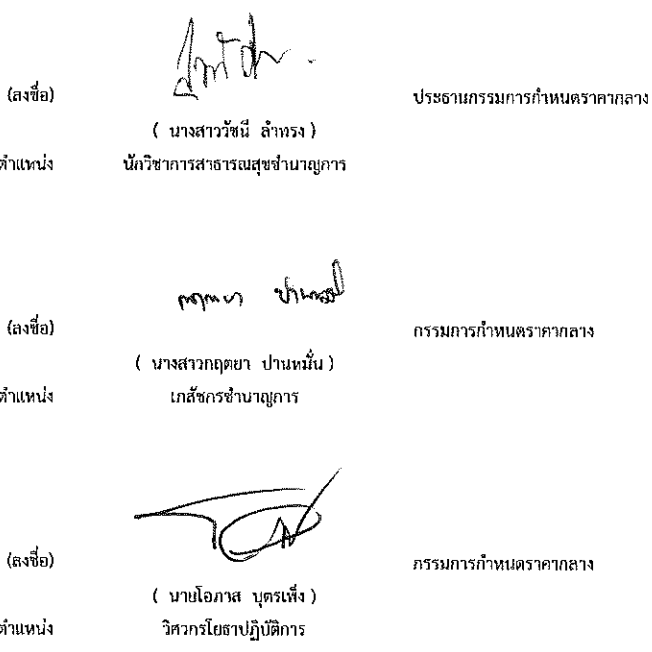 (ลงชื่อ) ประธานกรรมการกำหนดราคากลาง
( นางสาววัชนี ลำทรง )
ตำแหน่ง นักวิชาการสาธารณสุขชำนาญการ
กฤตยา ปานหมั่น
(ลงชื่อ) กรรมการกำหนดราคากลาง
( นางสาวกฤตยา ปานหมั่น )
ตำแหน่ง เภสัชกรชำนาญการ
(ลงชื่อ) กรรมการกำหนดราคากลาง
( นายโอภาส บุตรเพ็ง )
ตำแหน่ง วิศวกรโยธาปฏิบัติการ